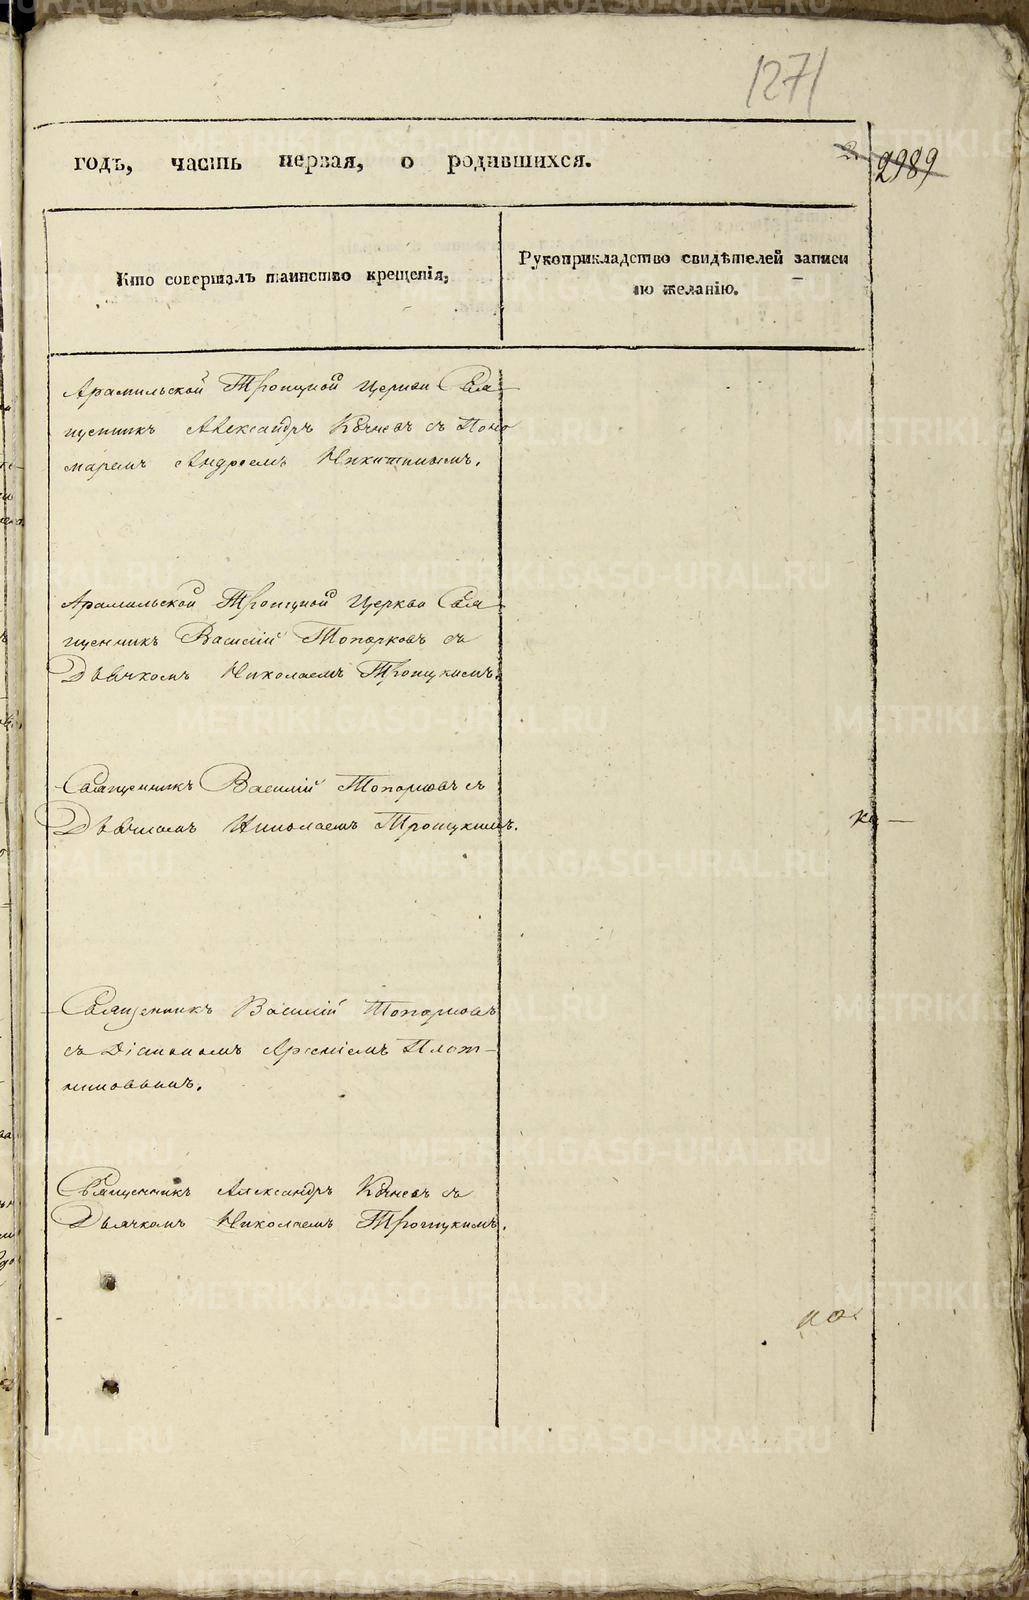 1271
годъ, часть первая, о родившихся.
2989
Кто совершалъ таинство крещенія,
Рукоприкладство свидѣтелей записи
по желанію.
Арамильской Троицкой Церкви Свя-
щенникъ Александръ Кочневъ съ Поно
маремъ Андреемъ Никитинымъ.
Арамильской Троицкой Церкви Свя-
щенникъ Василій Топорковъ съ
Дьячкомъ Николаемъ Троицкимъ.
Священникъ Василій Топорковъ съ
Дьячкомъ Николаемъ Троицкимъ.
Священникъ Василій Топорковъ
съ Діакономъ Арсеніемъ Плот-
никовымъ.
Священникъ Александръ Кочневъ съ
Дьячкомъ Николаемъ Троицкимъ.
METRIKI.GASO-URAL.RU